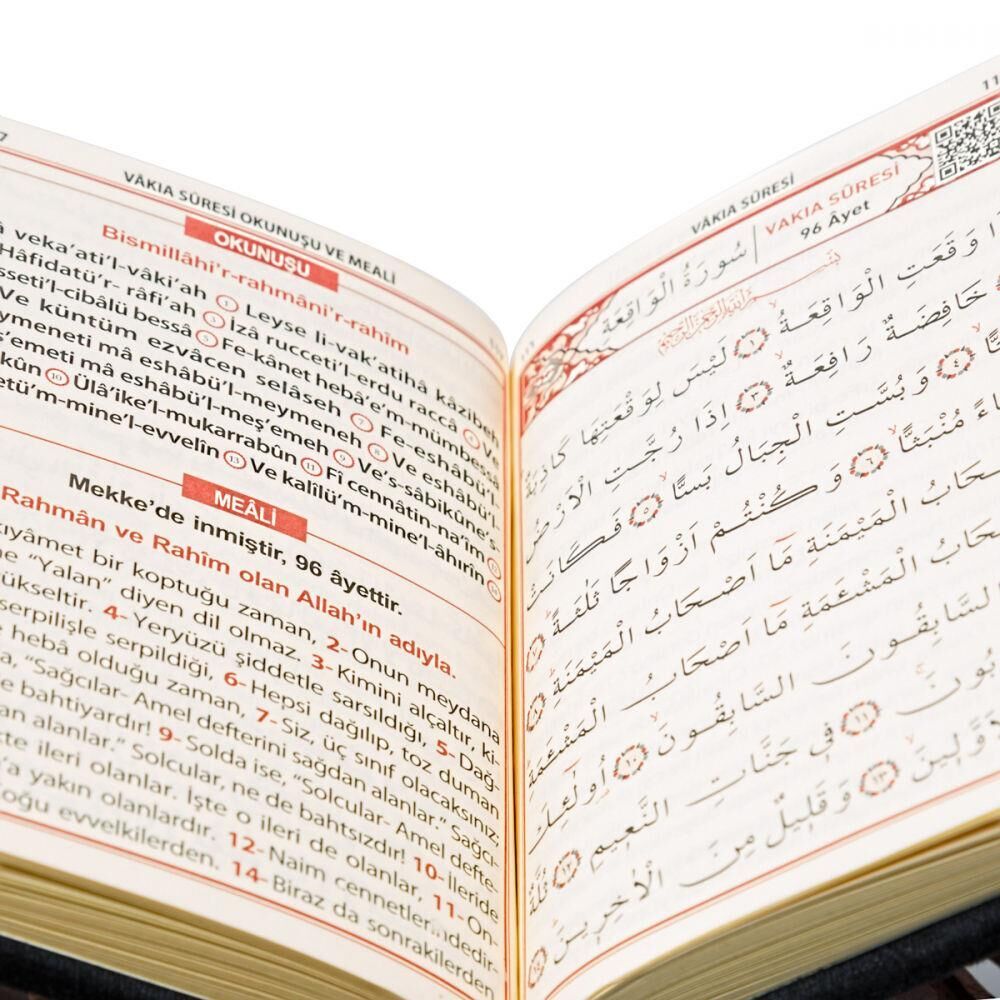 VÂKIA SÛRESİ OKUNUŞU VE MEALİ
OKUNUŞU
Bismillâhi'r-rahmâni'r-rahîm
veka'ati'l-vâki'ah ① Leyse li-vak'atihâ kâzibeh
Hâfidatü'r- râfi'ah ③ İzâ rucceti'l-erdu raccâ ④ Ve
sseti'l-cibâlü bessâ ⑤ Fe-kânet hebâ'e'm-mümbessâ
Ve küntüm ezvâcen selâseh ⑦ Fe-eshâbü'l-
ymeneti mâ eshâbü'l-meymeneh ⑧ Ve eshâbü'l-
ş'emeti mâ eshâbü'l-meş'emeh ⑨ Ve's-sâbikûne's-
kûn ⑩ Ülâ'ike'l-mukarrabûn ⑪ Fî cennâtin-na'îm ⑫
etü'm-mine'l-evvelîn ⑬ Ve kalîlü'm-mine'l-âhırîn ⑭
MEÂLİ
Mekke'de inmiştir, 96 âyettir.
Rahmân ve Rahîm olan Allah'ın adıyla.
kıyâmet bir koptuğu zaman, 2- Onun meydana
ne "Yalan" diyen dil olmaz. 3- Kimini alçaltır, ki-
yükseltir. 4- Yeryüzü şiddetle sarsıldığı, 5- Dağ-
serpilişle serpildiği, 6- Hepsi dağılıp, toz duman
heba olduğu zaman, 7- Siz, üç sınıf olacaksınız;
"Sağcılar- Amel defterini sağdan alanlar." Sağcı-
e bahtiyardır! 9- Solda ise, "Solcular- Amel defte-
an alanlar." Solcular, ne de bahtsızdır! 10- İleride
te ileri olanlar. İşte o ileri de olanlar, 11- On-
'a yakın olanlardır. 12- Naim cennetlerindedir-
oğu evvelkilerden. 14- Biraz da sonrakilerden
11
VÂKIA SÛRESİ
سُورَةُ الْوَاقِعَةِ
VAKIA SÛRESİ
96 Âyet
وَقَعَتِ الْوَاقِعَةُ ﴿١﴾ لَيْسَ لِوَقْعَتِهَا كَاذِبَةٌ
خَافِضَةٌ رَافِعَةٌ ﴿٣﴾ اِذَا رُجَّتِ الْاَرْضُ
﴿٤﴾ وَبُسَّتِ الْجِبَالُ بَسًّا ﴿٥﴾ فَكَانَتْ
مُنْبَثًّا ﴿٦﴾ وَكُنْتُمْ اَزْوَاجًا ثَلٰثَةً ﴿٧﴾
حَابُ الْمَيْمَنَةِ مَا اَصْحَابُ الْمَيْمَنَةِ ﴿٨﴾
حَابُ الْمَشْـَٔمَةِ مَا اَصْحَابُ الْمَشْـَٔمَةِ
السَّابِقُونَ السَّابِقُونَ ﴿١٠﴾ اُولٰٓئِكَ
بُونَ ﴿١١﴾ فِى جَنَّاتِ النَّعِيمِ ﴿١٢﴾ ثُلَّةٌ
وَّلِينَ ﴿١٣﴾ وَقَلِيلٌ مِنَ الْاٰخِرِينَ ﴿١٤﴾